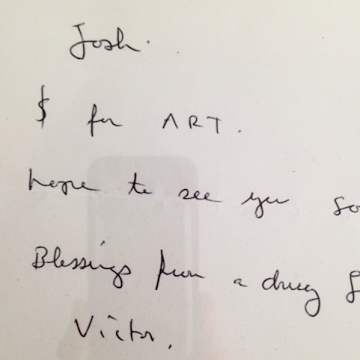 Josh.
$ for ART.
hope to see you so
Blessings from a drug
Victor.